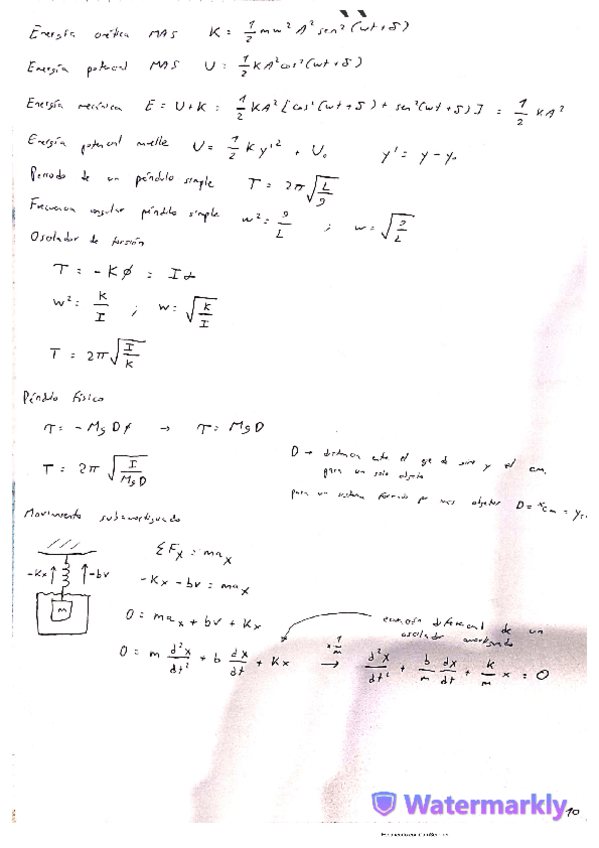 Energía cinética MAS K = 1/2 mw² A² sen² (wt + δ)
Energía potencial MAS U = 1/2 KA² cos² (wt + δ)
Energía mecánica E = U + K = 1/2 KA² [cos² (wt + δ) + sen² (wt + δ)] = 1/2 KA²
Energía potencial muelle U = 1/2 K y'² + U₀ y' = y - y₀
Periodo de un péndulo simple T = 2π √(L/g)
Frecuencia angular péndulo simple w² = g/L ; w = √(g/L)
Oscilador de torsión
τ = -Kφ = Iα
w² = K/I ; w = √(K/I)
T = 2π √(I/K)
Péndulo físico
τ = -MgDφ → τ = MgD
T = 2π √(I/MgD)
D → distancia entre el eje de giro y el cm.
para un solo objeto
para un sistema formado por más objetos D = x cm = y
Movimiento subamortiguado
ΣFx = max
-Kx - bv = max
0 = max + bv + Kx
0 = m d²x/dt² + b dx/dt + Kx
ecuación diferencial de un
oscilador amortiguado
× 1/m → d²x/dt² + b/m dx/dt + K/m x = 0
-Kx
-bv
m
Watermarkly
10